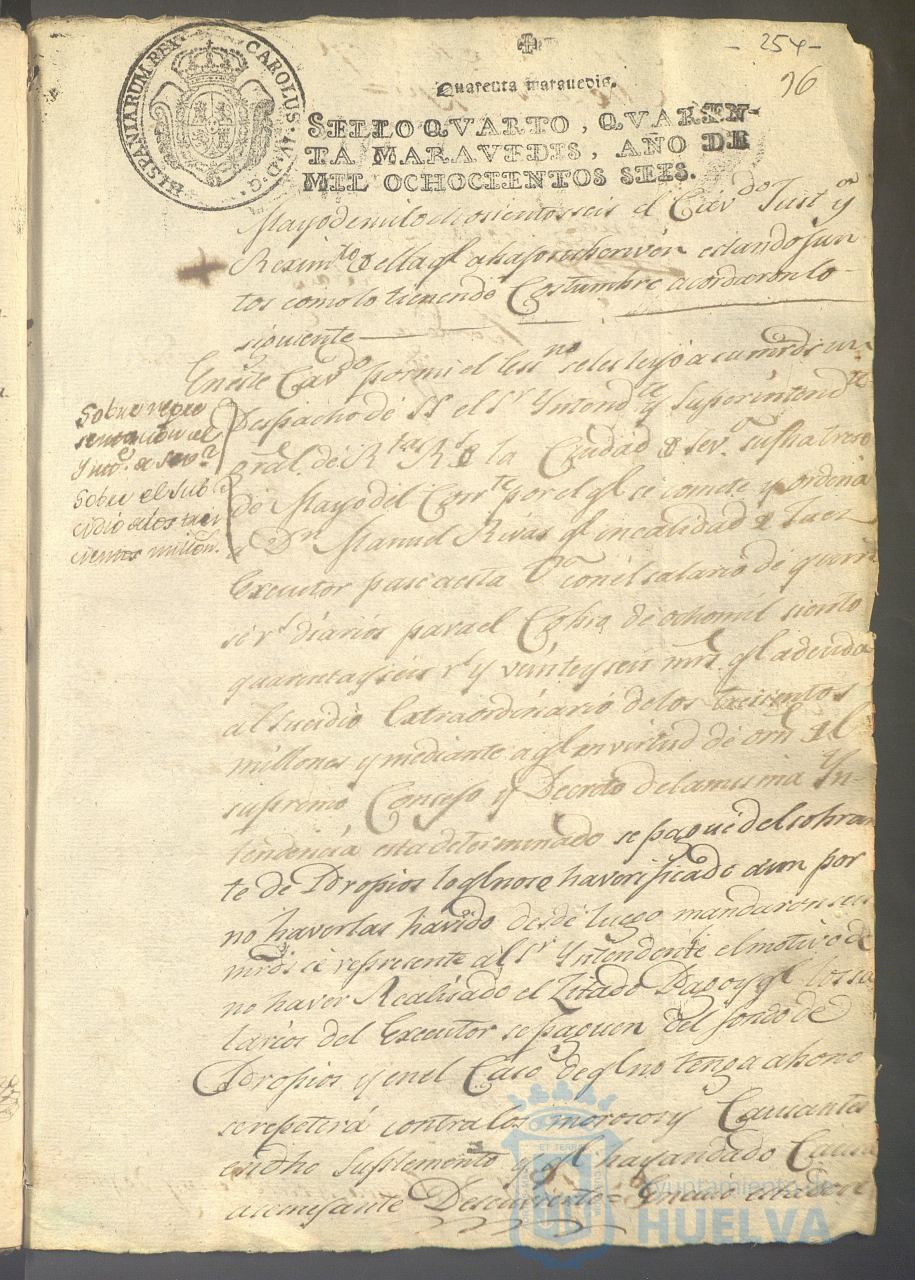 - 254 -
96
HISPANIARUM REX CAROLUS · IV · D · G ·
Quarenta maravedis.
SELLO QVARTO, QVAREN-
TA MARAVEDIS, AÑO DE
MIL OCHOCIENTOS SEIS.
Mayo de mil ochosientos seis el Cavdo Justa y
Reximto de ella ql avajo subscriven estando jun
tos como lo tienen de Costumbre acordaron lo
siguiente
En este Cavdo por mi el Essno se les leyó a sus mrds un
Despacho de SS el Sr Yntendte y Superintendte
gral de Rtas Rs de la Ciudad de Seva su fha trese
de Mayo del Corrte por el ql se comete y ordena
a Dn Manuel Rivas ql en calidad de Juez
Executor pase a esta Va con el salario de quin
se rs diarios para el Cobro de ocho mil siento
quarenta y seis rs y veinte y seis mrs ql adeuda
al Sucidio Extraordinario de los tresientos
millones y mediante a ql en virtud de orn del
supremo Consejo y Decreto de la misma Yn-
tendencia esta determinado se pague del sobran
te de Propios lo ql no se ha verificado aun por
no haverlas havido desde luego mandaron sus
mrds se represente al Sr Yntendente el motivo de
no haver Realisado el Zitado Pago y ql los sa
larios del Executor se paguen del fondo de
Propios y en el Caso de ql no tenga abono
se repetirá contra los morosos y Causantes
en dho Suplemento y ql hayan dado Causa
a semejante Descuvierto =
Sobre repre
sentacion al
Yntte de Seva
Sobre el Sub
cidio de los tres
cientos millon.
Ayuntamiento de
HUELVA